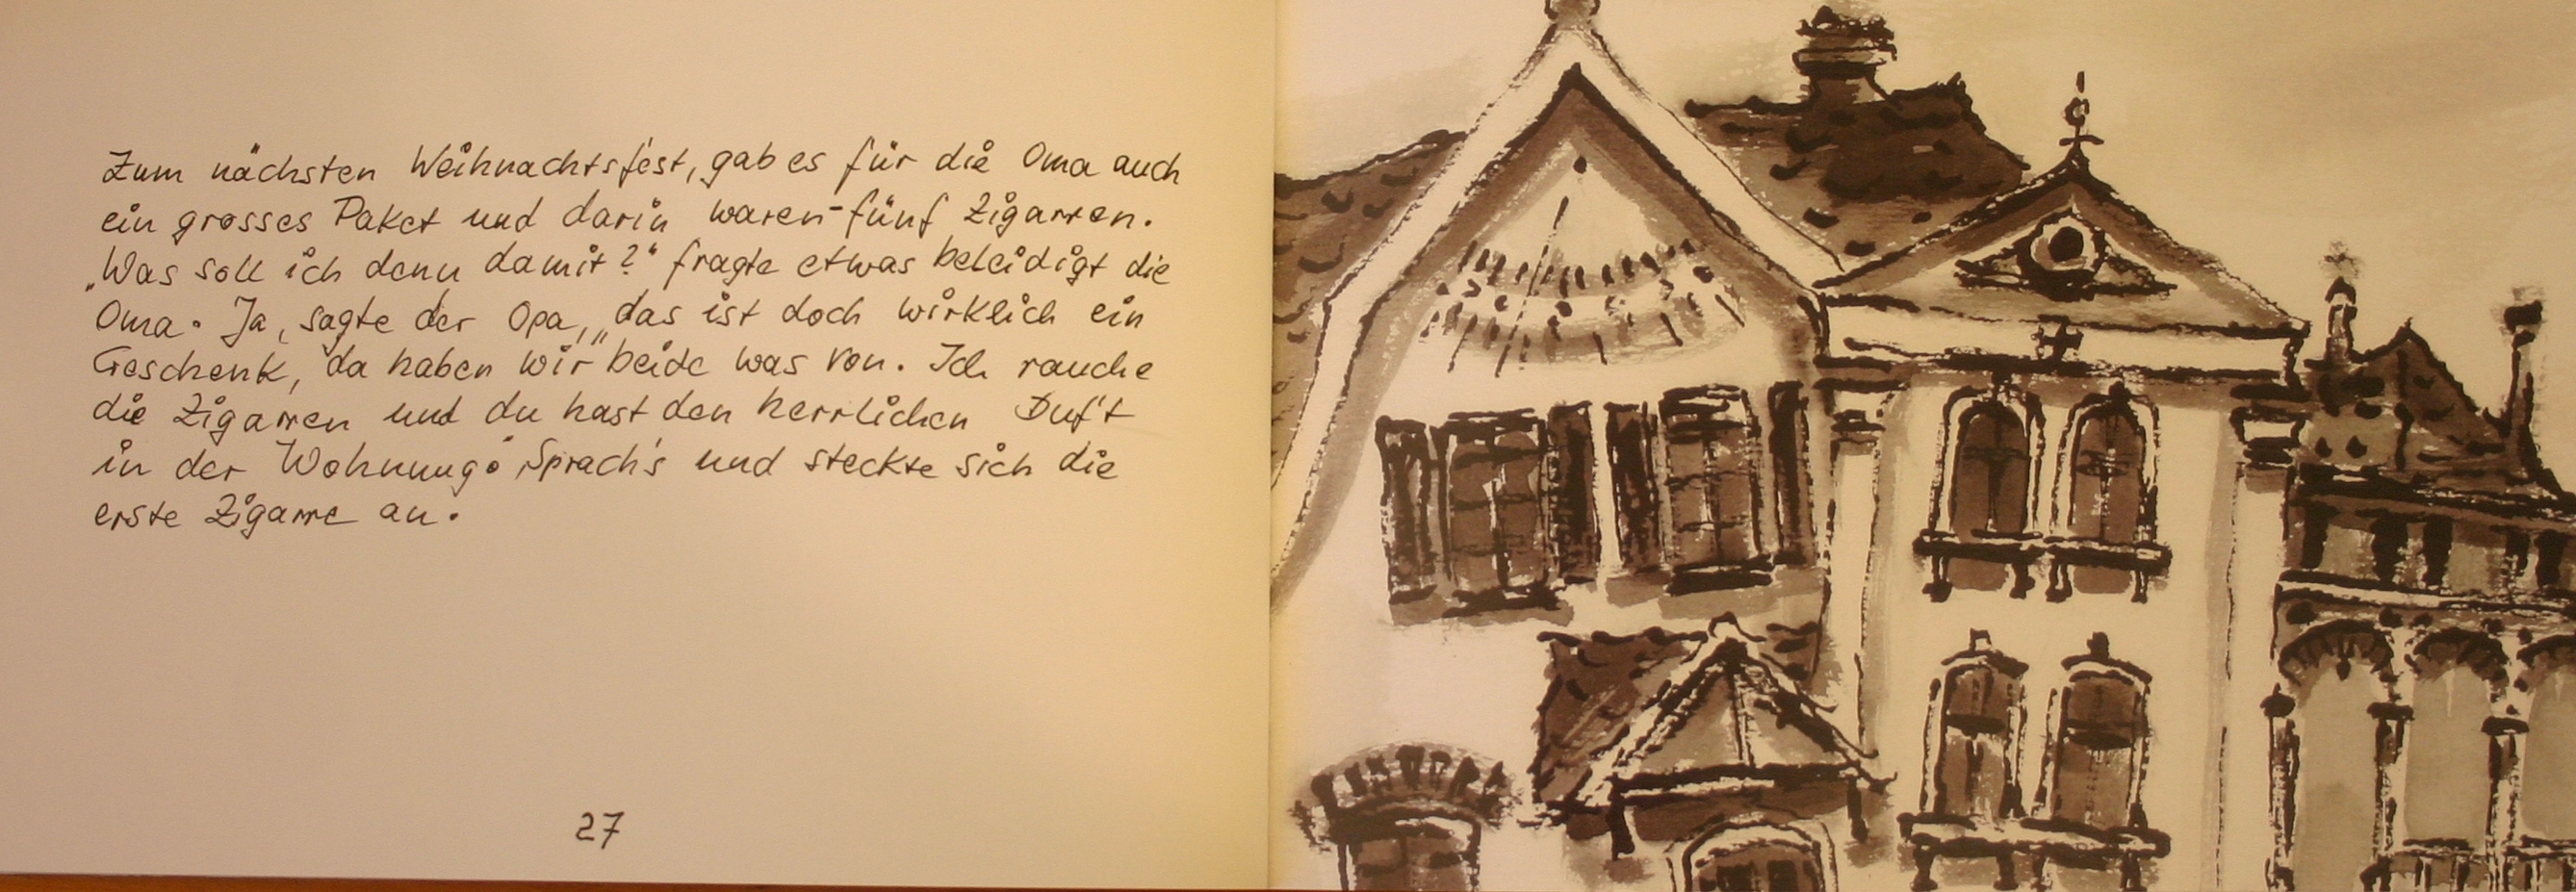 Zum nächsten Weihnachtsfest, gab es für die Oma auch
ein grosses Paket und darin waren fünf Zigarren.
„Was soll ich denn damit?“ fragte etwas beleidigt die
Oma. Ja, sagte der Opa, „das ist doch wirklich ein
Geschenk, da haben wir beide was von. Ich rauche
die Zigarren und du hast den herrlichen Duft
in der Wohnung. Sprach's und steckte sich die
erste Zigarre an.
27